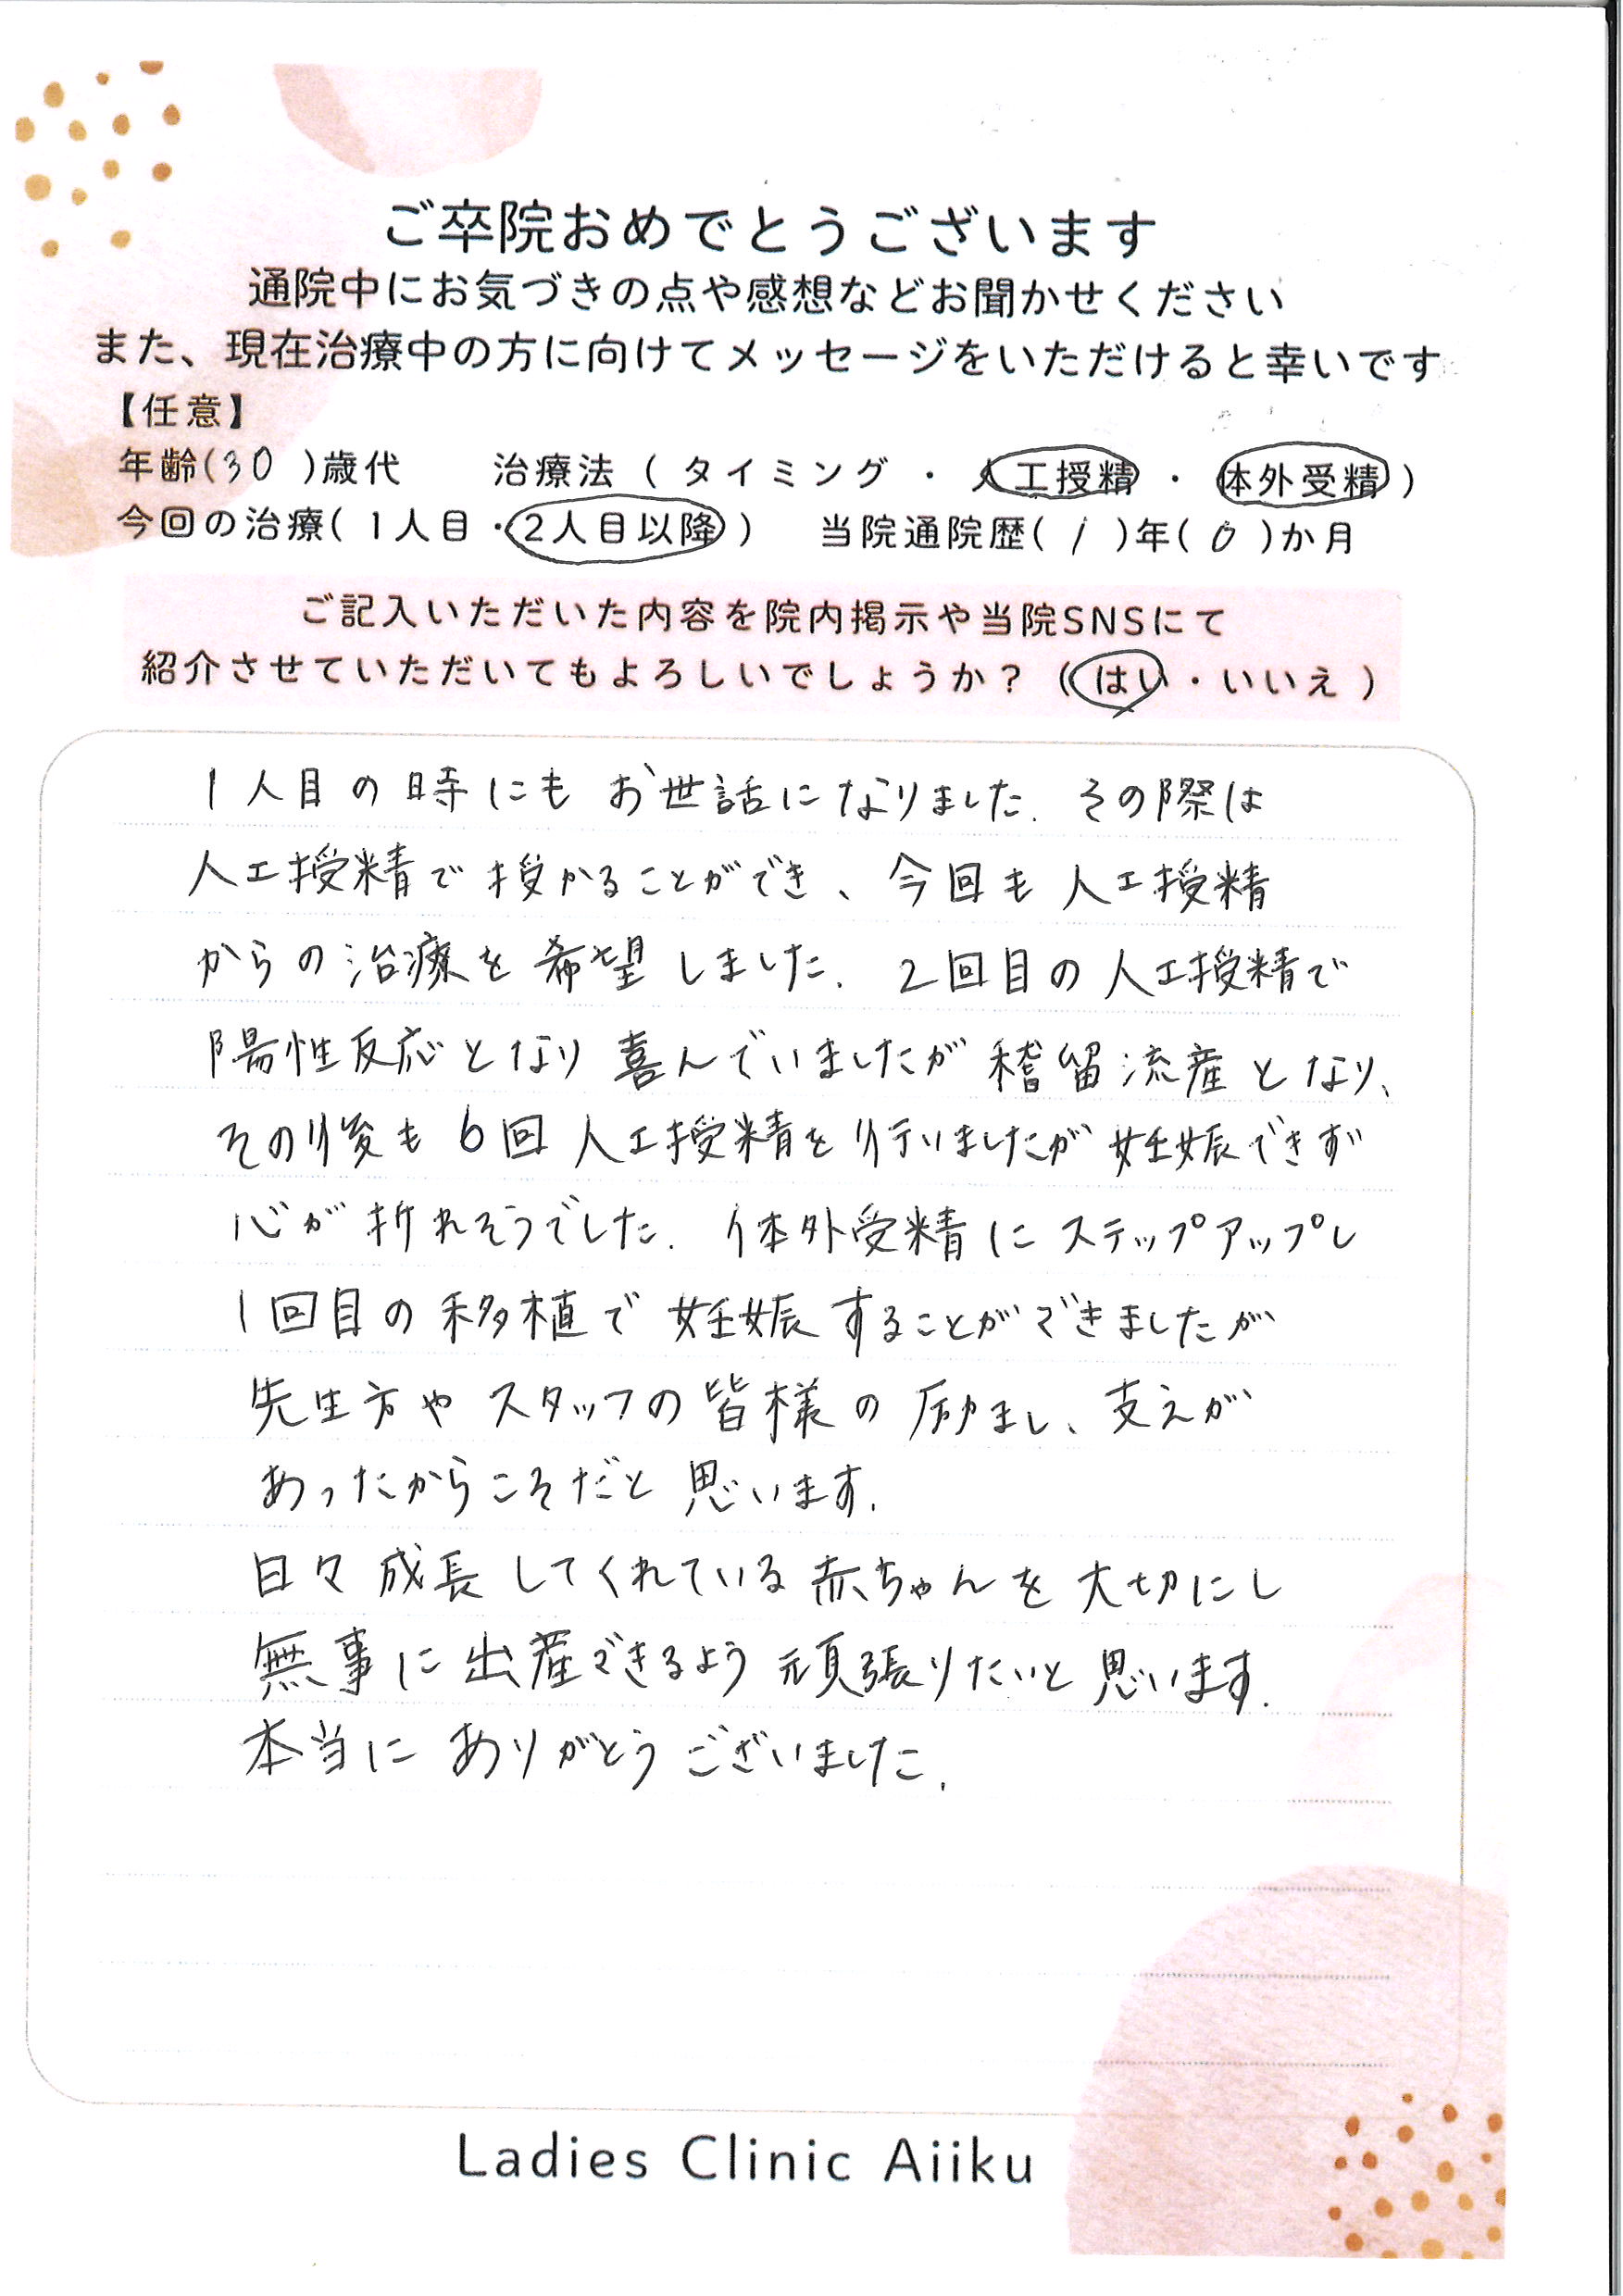 ご卒院おめでとうございます
通院中にお気づきの点や感想などお聞かせください
また、現在治療中の方に向けてメッセージをいただけると幸いです
【任意】
年齢(30 )歳代　治療法 ( タイミング ・ 人工授精 ・ 体外受精 )
今回の治療( 1人目・2人目以降 )　当院通院歴( 1 )年( 0 )か月
ご記入いただいた内容を院内掲示や当院SNSにて
紹介させていただいてもよろしいでしょうか？ ( はい・いいえ )
1人目の時にもお世話になりました. その際は
人工授精で授かることができ、今回も人工授精
からの治療を希望しました. 2回目の人工授精で
陽性反応となり喜んでいましたが稽留流産となり、
その後も6回人工授精を行いましたが妊娠できず
心が折れそうでした. 体外受精にステップアップし
1回目の移植で妊娠することができましたが
先生方やスタッフの皆様の励まし、支えが
あったからこそだと思います.
日々成長してくれている赤ちゃんを大切にし
無事に出産できるよう頑張りたいと思います.
本当にありがとうございました.
Ladies Clinic Aiiku